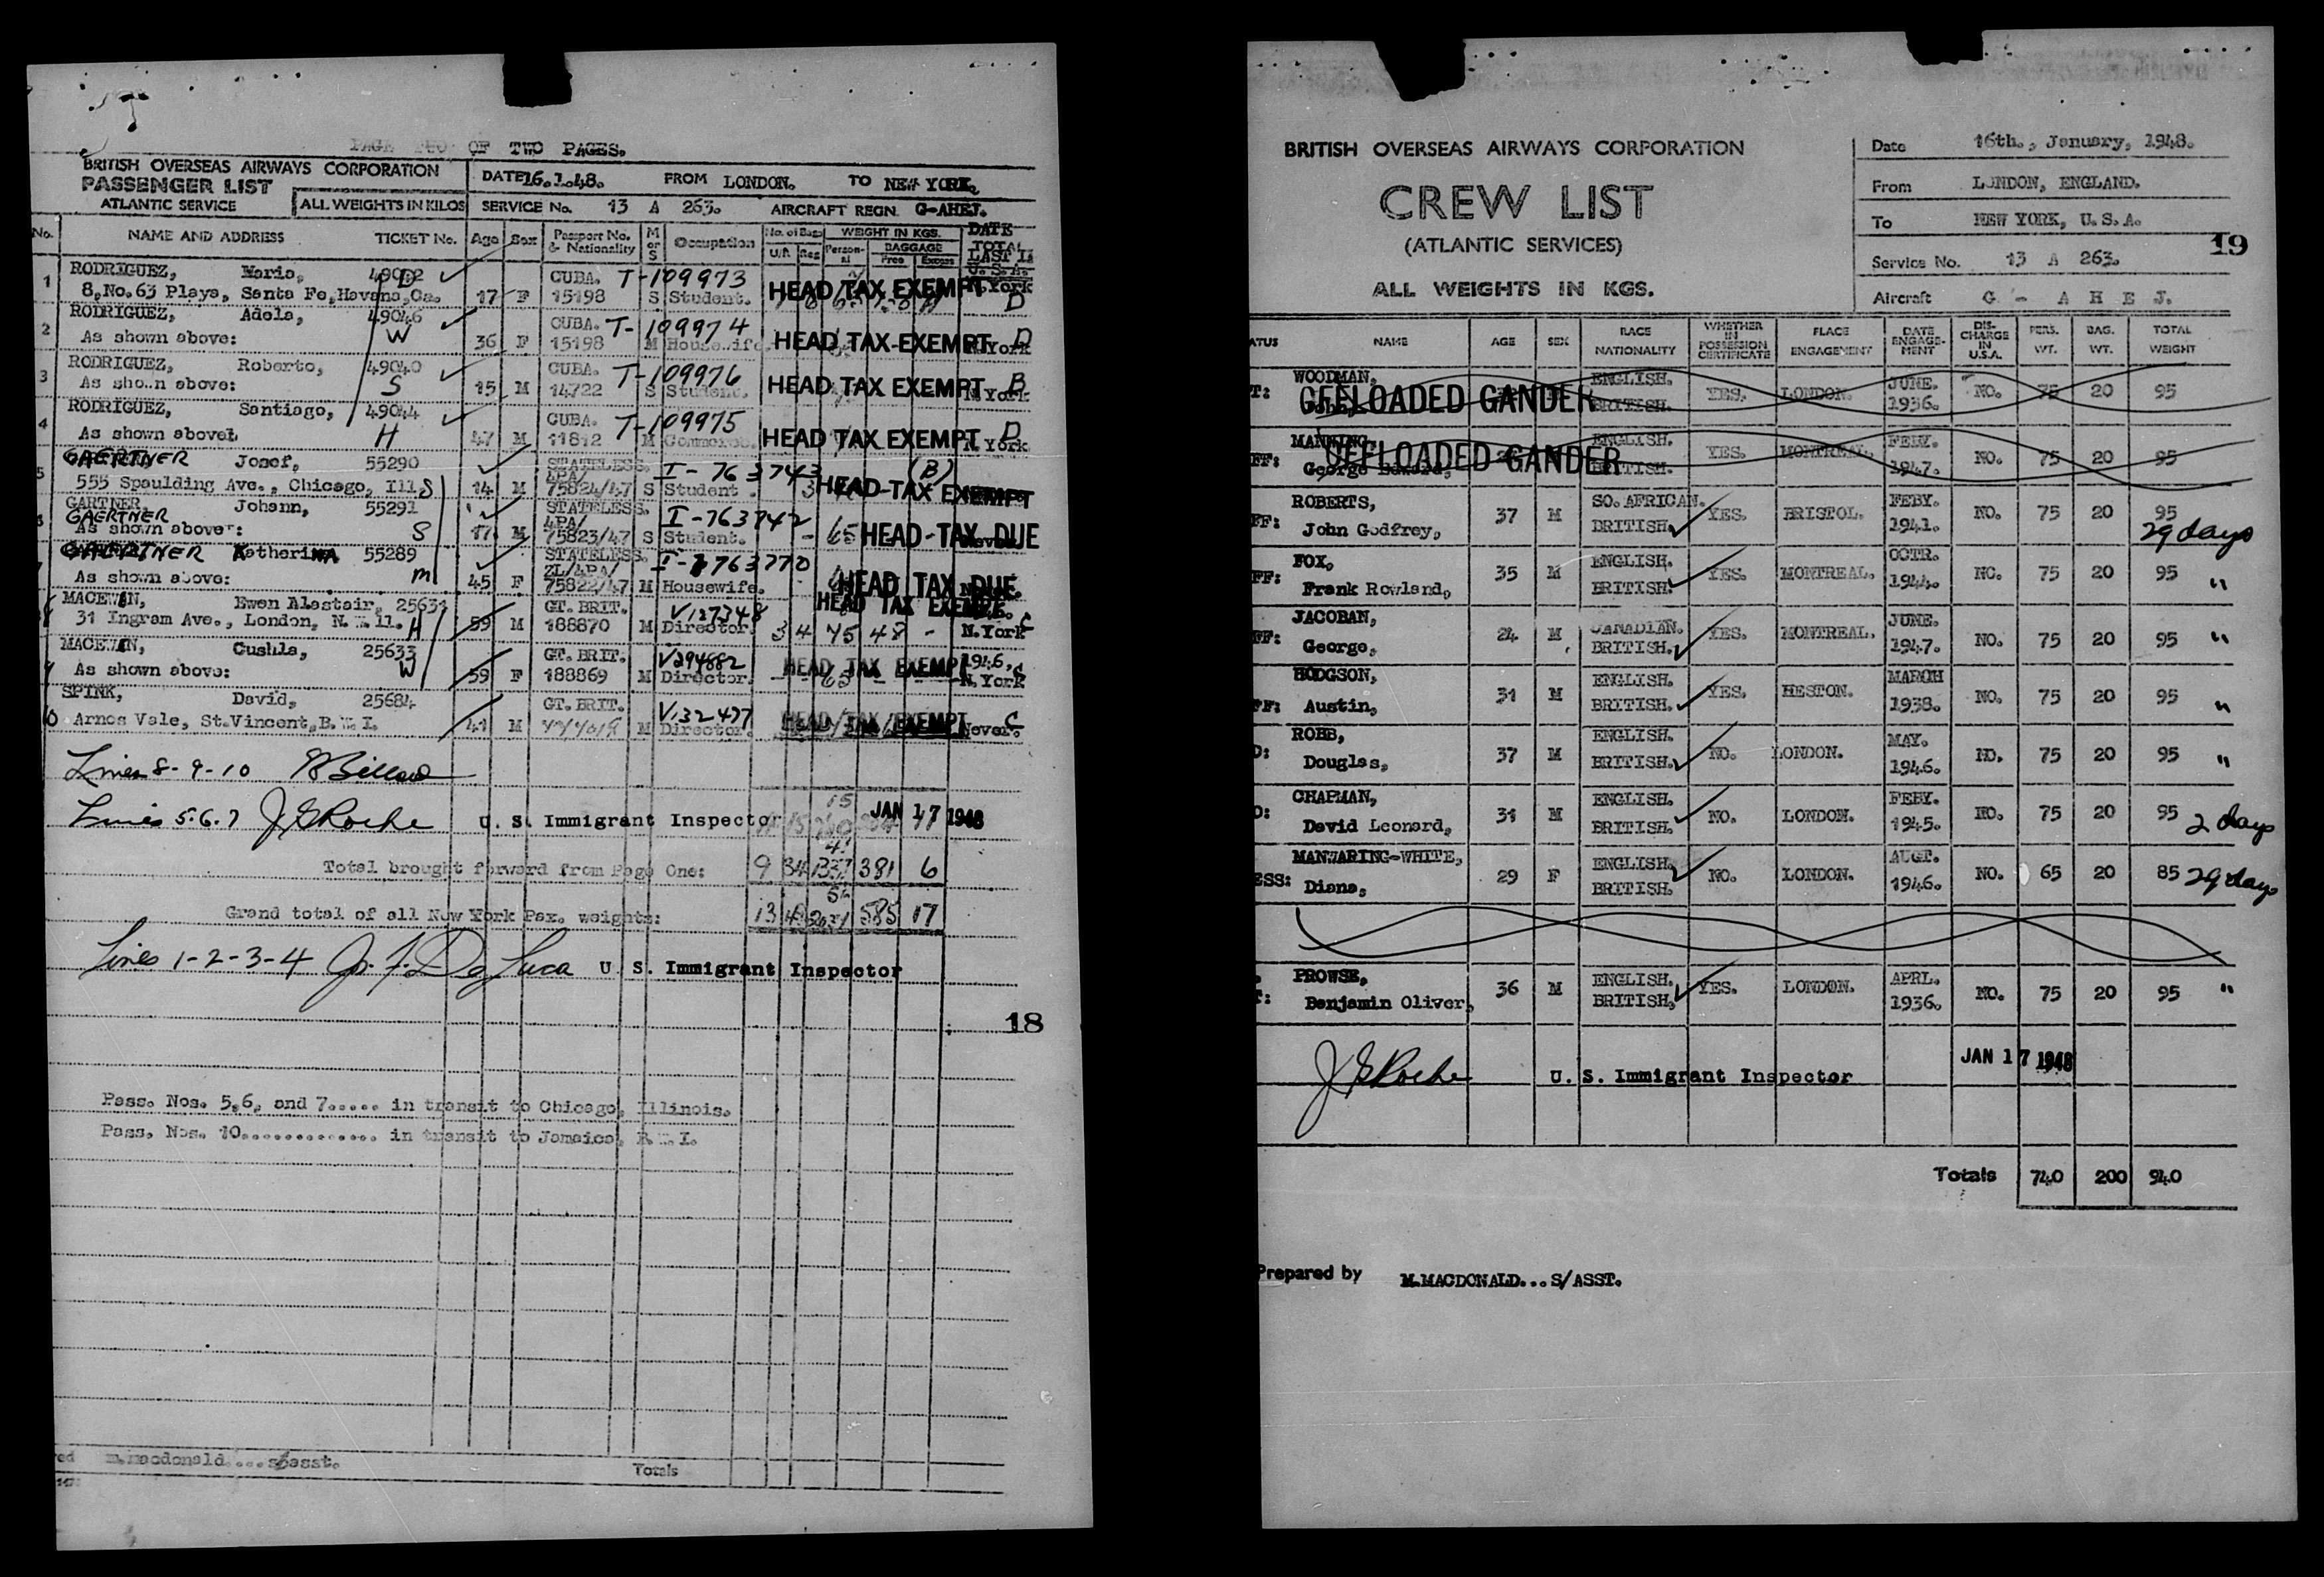 OF TWO PAGES.
BRITISH OVERSEAS AIRWAYS CORPORATION
PASSENGER LIST
ATLANTIC SERVICE
ALL WEIGHTS IN KILOS
DATE 16.1.48. FROM LONDON. TO NEW YORK.
SERVICE No. 13 A 263. AIRCRAFT REGN. G-AHEJ.
No. NAME AND ADDRESS TICKET No. Age Sex Passport No. & Nationality M or S Occupation No. of Bags WEIGHT IN KGS. DATE
U/A Reg Personal BAGGAGE Free Excess TOTAL LAST I. U.S.A.
1 RODRIGUEZ, Maria, D CUBA. T-109973
8,No.63 Playa, Santa Fe,Havana,Ca. 17 F 15198 S Student. HEAD TAX EXEMPT N.York D
2 RODRIGUEZ, Adela, 49046 CUBA. T-109974
As shown above: W 36 F 15198 M HEAD TAX-EXEMPT N.York D
3 RODRIGUEZ, Roberto, 49040 CUBA. T-109976
As shown above: S 15 M 14722 S Student. HEAD TAX EXEMPT N.York B
4 RODRIGUEZ, Santiago, 49044 CUBA. T-109975
As shown above: H 47 M 11812 M HEAD TAX EXEMPT N.York D
5 GAERTNER Josef, 55290 STATELESS. I-763743 (B)
555 Spaulding Ave., Chicago, Ill. S 14 M 75824/47 S Student. HEAD-TAX EXEMPT
GARTNER, Johann, 55291 STATELESS. I-763742
GAERTNER
As shown above: S 17. M 4PA/ 75823/47 S Student. - 65 HEAD-TAX DUE
GAERTNER Katherina 55289 STATELESS. I-763770
As shown above: m 45 F ZL/4PA/ 75822/47 M Housewife. HEAD TAX DUE
MACEWEN, Ewen Alastair, 25631 GT. BRIT. V127348 HEAD TAX EXEMPT
31 Ingram Ave., London, N.W.11. H 59 M 188870 M Director. 3 4 75 48 - N.York C
9 MACEWEN, Cushla, 25633 GT. BRIT. V294882 1946,
As shown above: W 59 F 188869 M Director. HEAD TAX EXEMPT N.York C
SPINK, David, 25684 GT. BRIT. V132477
10 Arnos Vale, St.Vincent,B.W.I. 41 M M Director. HEAD TAX EXEMPT Never. C
Lines 8-9-10
Lines 5.6.7 J G Roche U. S. Immigrant Inspector JAN 17 1948
Total brought forward from Page One: 9 381 6
Grand total of all New York Pax. weights: 13 585 17
Lines 1-2-3-4 De Luca U. S. Immigrant Inspector
18
Pass. Nos. 5,6, and 7..... in transit to Chicago, Illinois.
Pass. Nos. 10............. in transit to Jamaica, B.W.I.
m.macdonald....s/asst.
Totals
BRITISH OVERSEAS AIRWAYS CORPORATION
CREW LIST
(ATLANTIC SERVICES)
ALL WEIGHTS IN KGS.
Date 16th., January, 1948.
From LONDON, ENGLAND.
To NEW YORK, U.S.A.
19
Service No. 13 A 263.
Aircraft G - A H E J.
ATUS NAME AGE SEX RACE NATIONALITY WHETHER IN POSSESSION CERTIFICATE PLACE ENGAGEMENT DATE ENGAGE-MENT DIS-CHARGE IN U.S.A. PERS. WT. BAG. WT. TOTAL WEIGHT
T: WOODMAN, ENGLISH. JUNE.
OFFLOADED GANDER BRITISH. YES. LONDON. 1936. NO. 75 20 95
FF: MANNING, ENGLISH. FEBY.
George Edward, OFFLOADED GANDER BRITISH. YES. MONTREAL. 1947. NO. 75 20 95
FF: ROBERTS, SO. AFRICAN. FEBY.
John Godfrey, 37 M BRITISH. YES. BRISTOL. 1941. NO. 75 20 95 29 days
FF: FOX, ENGLISH. OCTR.
Frank Rowland, 35 M BRITISH. YES. MONTREAL. 1944. NO. 75 20 95 "
FF: JACOBAN, CANADIAN. JUNE.
George, 24 M BRITISH. YES. MONTREAL. 1947. NO. 75 20 95 "
FF: HODGSON, ENGLISH. MARCH
Austin, 31 M BRITISH. YES. HESTON. 1938. NO. 75 20 95 "
O: ROBB, ENGLISH. MAY.
Douglas, 37 M BRITISH. NO. LONDON. 1946. NO. 75 20 95 "
O: CHAPMAN, ENGLISH. FEBY.
David Leonard, 31 M BRITISH. NO. LONDON. 1945. NO. 75 20 95 2 days
ESS: MANWARING-WHITE, ENGLISH. AUGT.
Diana, 29 F BRITISH. NO. LONDON. 1946. NO. 65 20 85 29 days
PROWSE, ENGLISH. APRL.
T: Benjamin Oliver, 36 M BRITISH. YES. LONDON. 1936. NO. 75 20 95 "
J G Roche U. S. Immigrant Inspector JAN 17 1948
Totals 740 200 940
Prepared by M.MACDONALD...S/ASST.